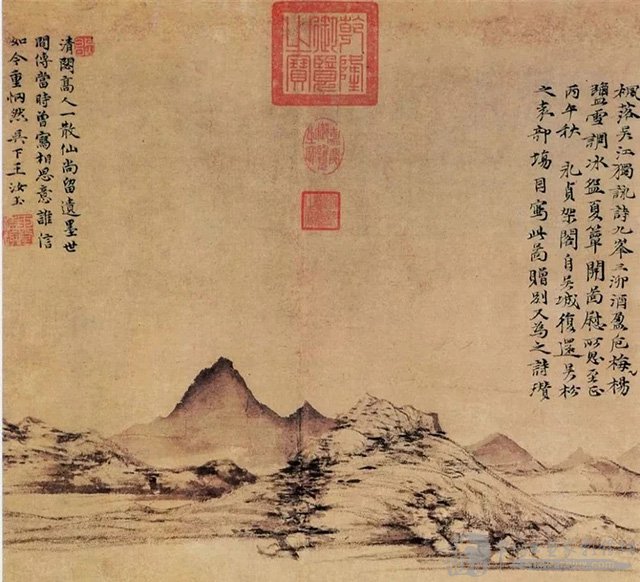 楓落吳江獨詠詩九峯三泖酒盈卮梅楊
鹽雪調冰盌夏簟開啚慰所思至正
丙午秋 永貞架閣自吳城復還吳松
之袁部場因寫此啚贈別又為之詩瓚
乾隆
御覽
之寶
清閟高人一散仙尚留遺墨世
間傳當時曾寫相思意誰信
如今重惘然吳下王汝玉